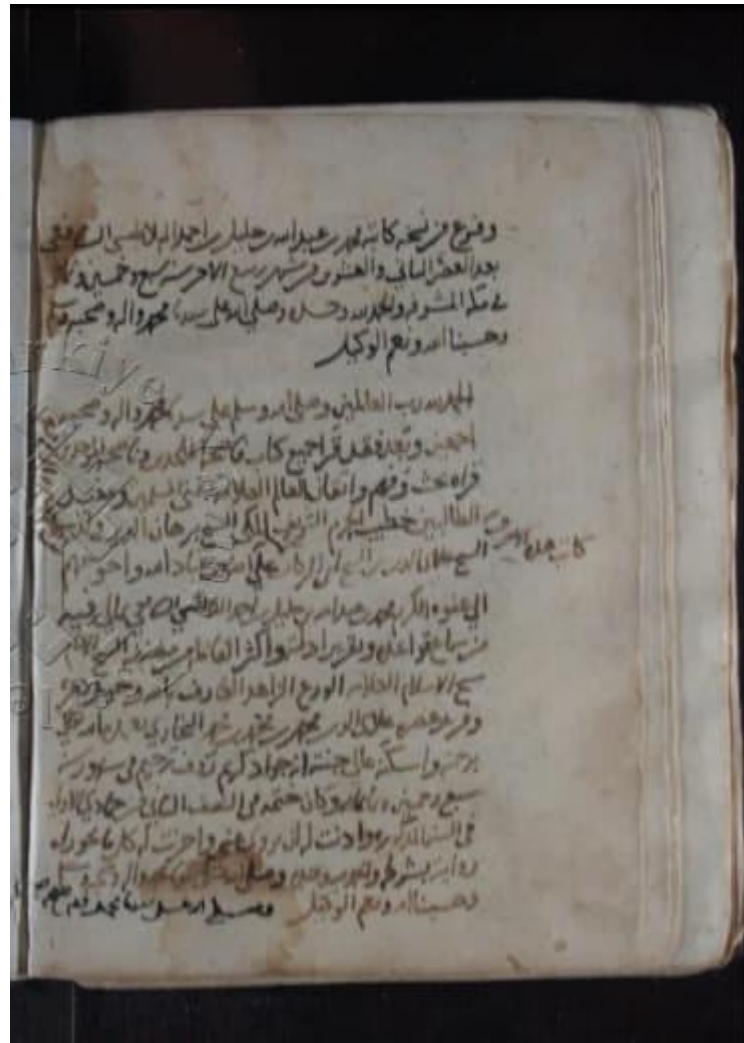 وفرغ من نسخه كاتبه محمد بن عبد الله بن خليل بن احمد البلاطنسي الشافعي
بعد العصر الثاني والعشرين من شهر ربيع الاخر سنة سبع وخمسين
في مكة المشرفة والحمد لله وحده وصلى الله على سيدنا محمد واله وصحبه وسلم
وحسبنا الله ونعم الوكيل
الحمد لله رب العالمين وصلى الله وسلم على سيدنا محمد واله وصحبه
اجمعين وبعد فقد قرا جميع كتاب فاضحة الملحدين وناصحة الموحدين
قراءة بحث وفهم واتقان العالم العلامة مفتي المسلمين ومفيد
الطالبين خطيب الحرم الشريف المكي الشيخ برهان الدين
كاتب هذه الاحرف
الشيخ علي عباد الله واحوجهم
الى عفوه الكريم محمد بن عبد الله بن خليل بن احمد البلاطنسي الشافعي
من سماع قواعده وتقرير ادلته واكثر الفاظه من مصنفه الشيخ الامام
شيخ الاسلام العلامة الورع الزاهد العارف بالله وحيد دهره
وفريد عصره علاء الدين محمد بن محمد بن محمد البخاري تغمده الله
برحمته واسكنه عالي جنته انه جواد كريم رؤف رحيم في شهور سنة
سبع وخمسين وثمانمائة وكان ختمه في النصف الثاني من جمادى الاولى
في السنة المذكورة واذنت له ان يرويه عني واجزت له كل ما يجوز له
روايته بشرطه وصلى الله على سيدنا محمد واله وصحبه وسلم
وحسبنا الله ونعم الوكيل وصلى الله على سيدنا محمد